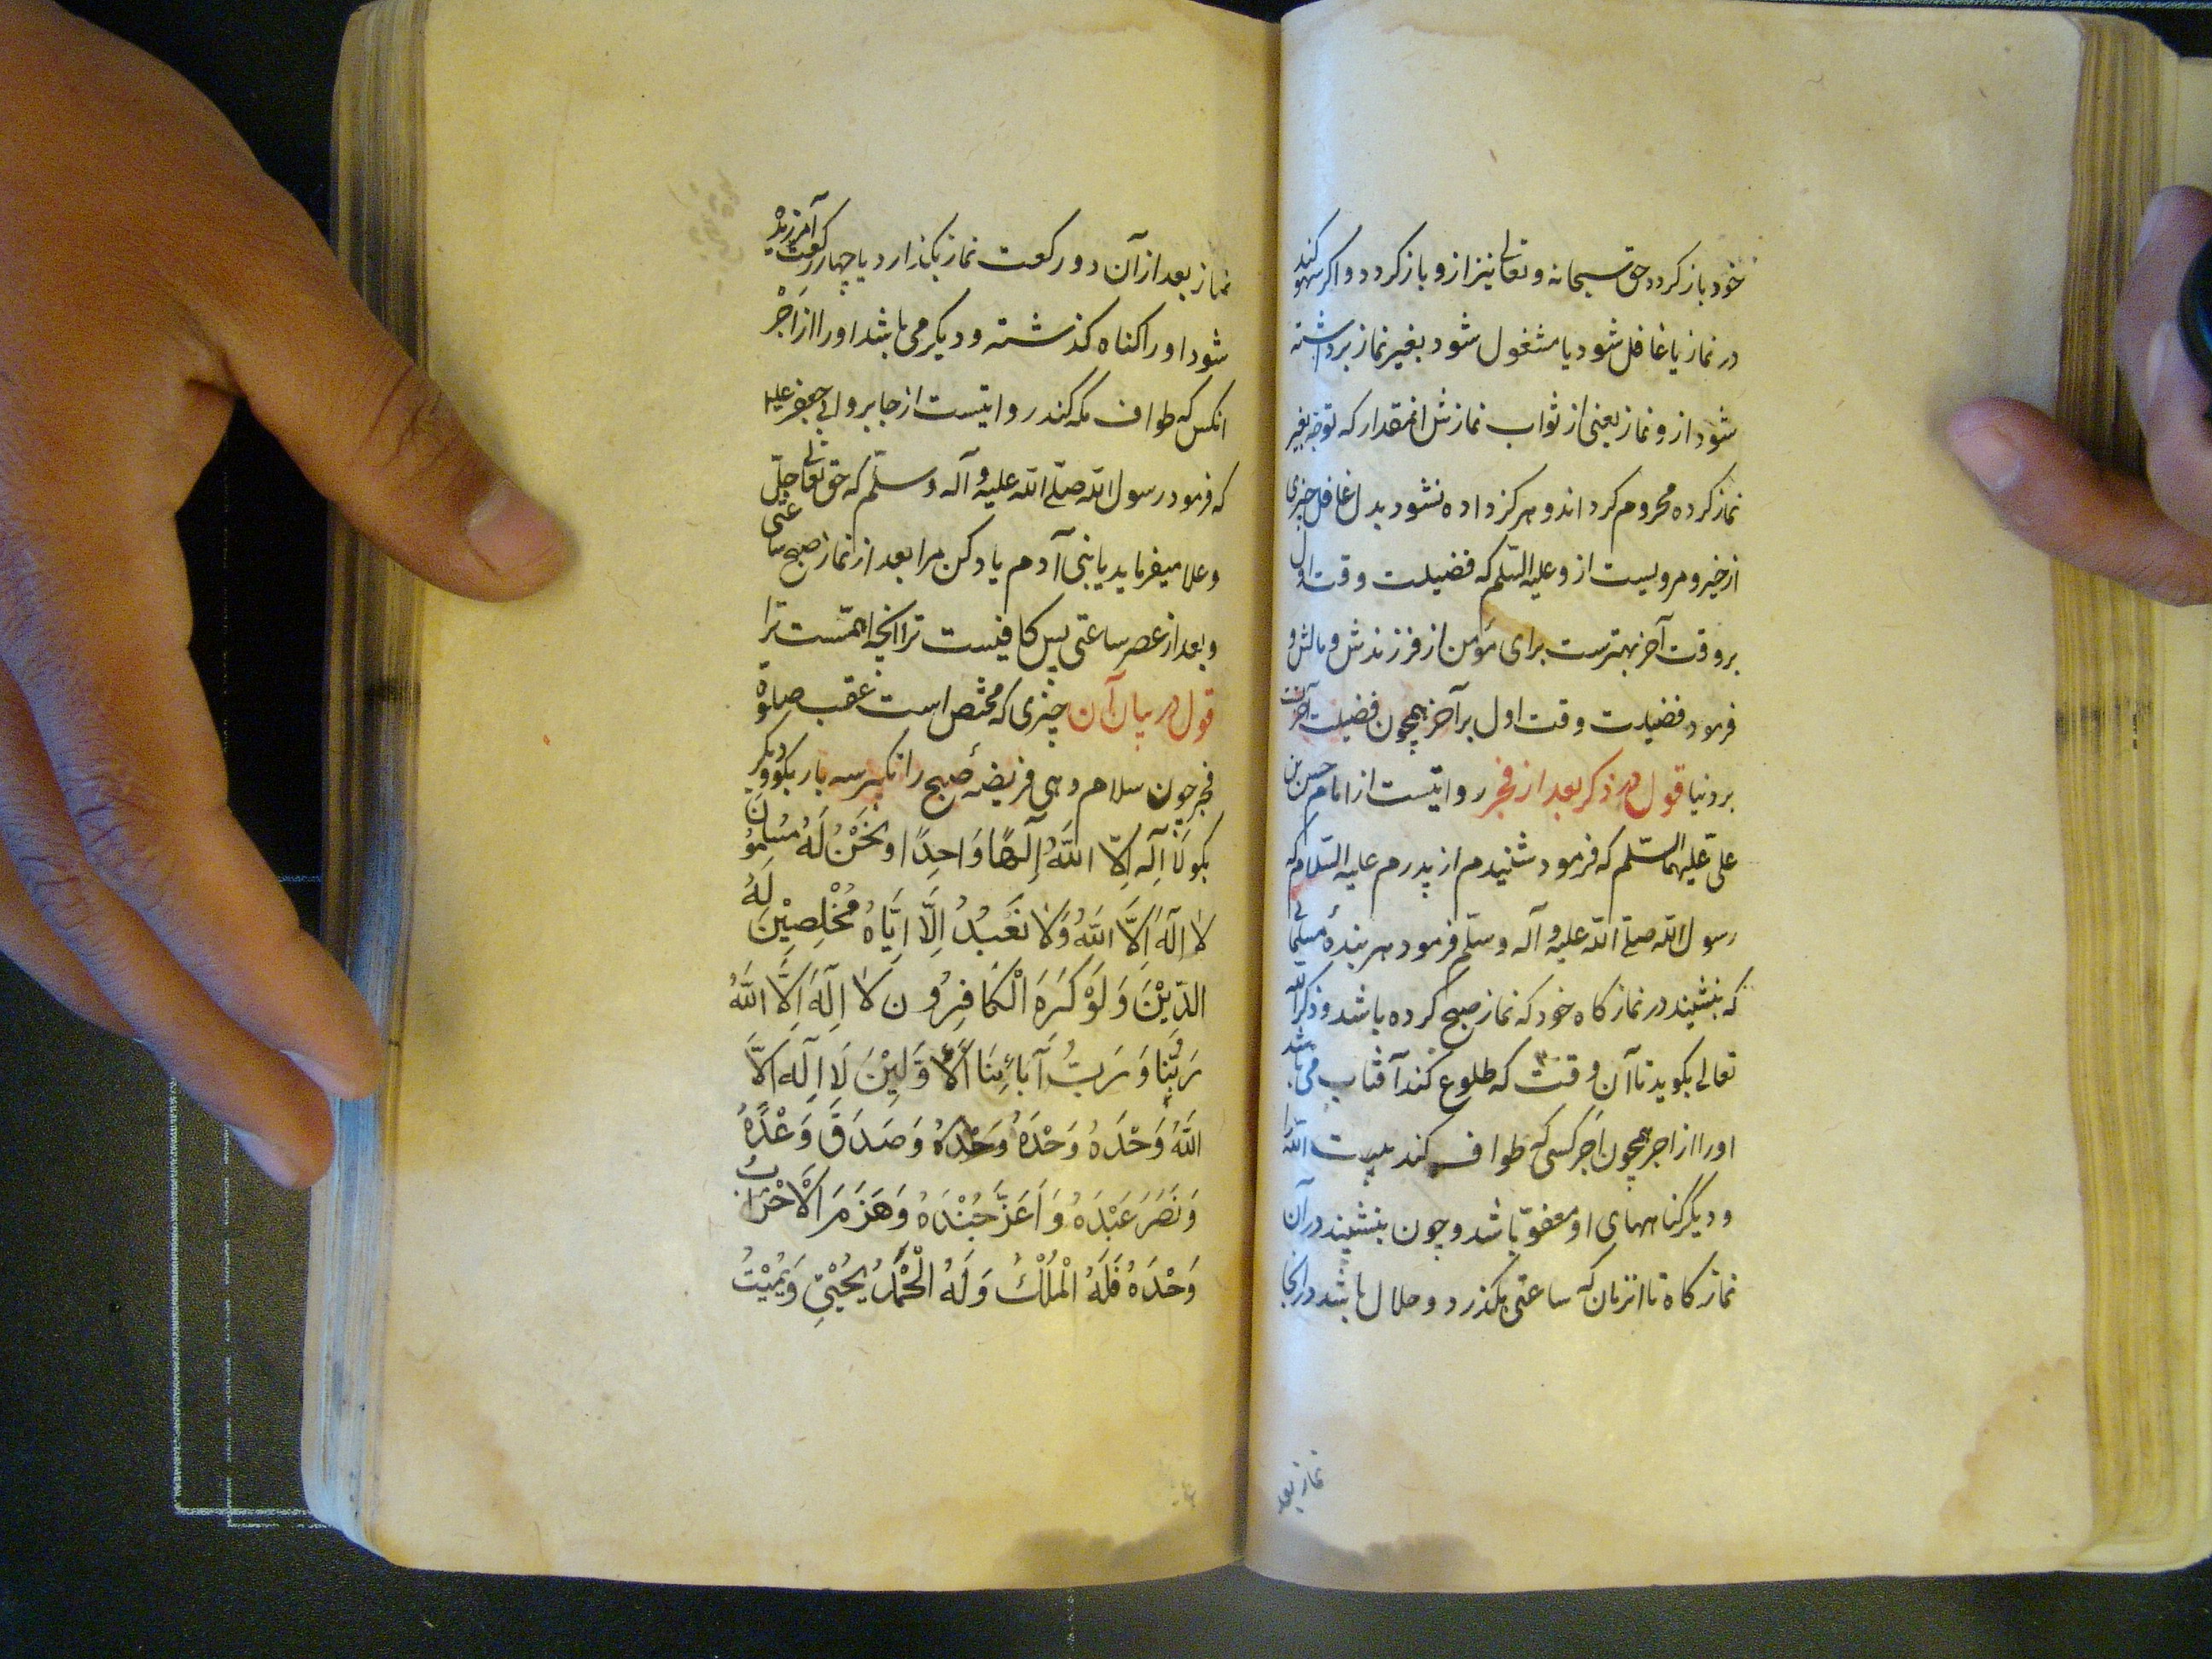 خود باز کردد حق سبحانه و تعالی نیز ازو باز کردد و اکر سهو کند
در نماز یا غافل شود یا مشغول شود بغیر نماز برداشته
شود ازو نماز یعنی از ثواب نمازش انمقدار که توجه بغیر
نماز کرده محروم کرداند و هرکز داده نشود بدل غافل چیزی
از خیر و مرویست ازو علیه السّلم که فضیلت وقت اول
بر وقت آخر بهترست برای مؤمن از فرزندش و مالش و
فرمود فضیلت وقت اول بر آخر همچون فضیلت آخرتست
بر دنیا قول در ذکر بعد از فجر روایتست از امام حسن بن
علی علیهما السّلم که فرمود شنیدم از پدرم علیه السّلام که
رسول الله صلّی الله علیه و آله و سلّم فرمود هر بندهٔ مسلمانی
که بنشیند در نماز کاه خود که نماز صبح کرده باشد و ذکر الله
تعالی بکوید تا آن وقت که طلوع کند آفتاب می باشد
او را از اجر همچون اجر کسی که طواف کند بیت الله را
و دیکر کناههای او معفوّ باشد و چون بنشیند در آن
نماز کاه تا انزمان که ساعتی بکذرد و حلال باشد در انجا
نماز بعد
نماز بعد از آن دو رکعت نماز بکذارد یا چهار رکعت آمرزیده
شود او را کناه کذشته و دیکر می باشد او را از اَجْر
انکس که طواف مکه کند روایتست از جابر و ابی جعفر علیه
که فرمود رسول الله صلّی الله علیه و آله و سلّم که حق تعالی جلّ
و علا میفرماید یا بنی آدم یاد کن مرا بعد از نماز صبح ساعتی
و بعد از عصر ساعتی پس کافیست ترا انچه اهمّست ترا
قول در بیان آن چیزی که مختص است عقب صلوة
فجر چون سلام دهی فریضهٔ صبح را تکبر سه بار بکو و دیکر
بکو لَا اِلٰه اِلَّا اللّٰهُ اِلٰهًا وَاحِدًا وَ نَحْنُ لَهُ مُسْلِمُونَ
لا اِلٰهَ اِلَّا اللّٰهُ وَلَا نَعْبُدُ اِلَّا اِیَّاهُ مُخْلِصِیْنَ لَهُ
الدِّیْنَ وَلَوْ کَرِهَ الْکَافِرُون لَا اِلٰهَ اِلَّا اللّٰهُ
رَبُّنَا وَ رَبُّ آبَائِنَا الْاَوَّلِیْنَ لَا اِلٰه اِلَّا
اللّٰهُ وَحْدَهُ وَحْدَهُ وَحْدَهُ وَ صَدَقَ وَعْدَهُ
وَ نَصَرَ عَبْدَهُ وَ اَعَزَّ جُنْدَهُ وَ هَزَمَ الْاَحْزَابَ
وَحْدَهُ فَلَهُ الْمُلْكُ وَ لَهُ الْحَمْدُ یُحْیِیْ وَ یُمِیْتُ